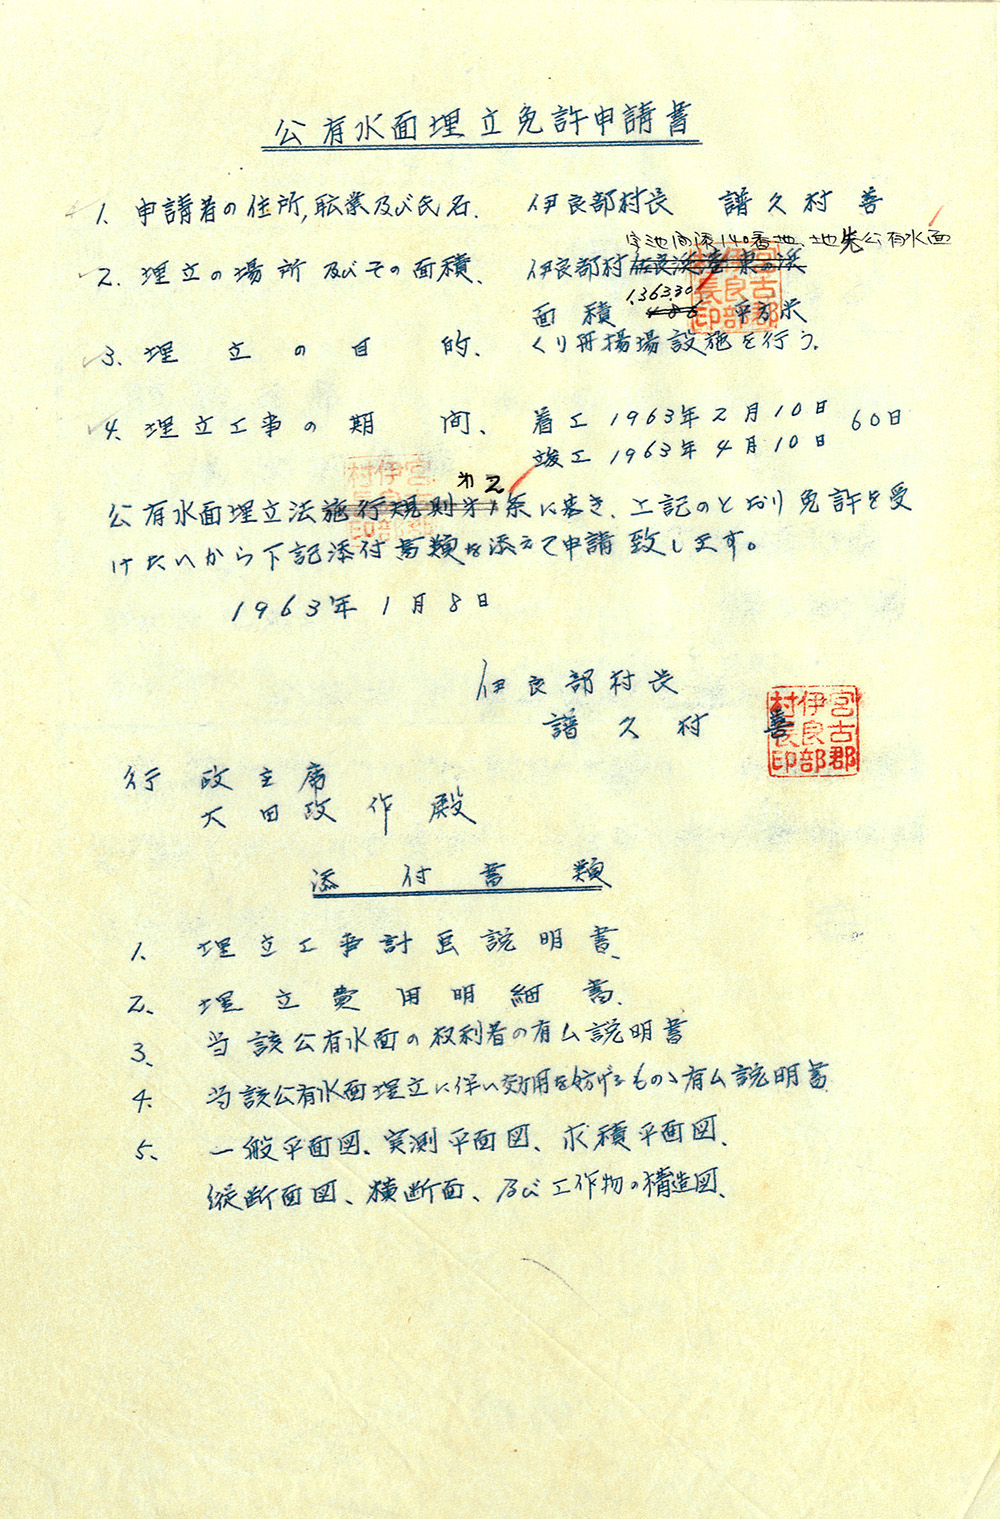 公有水面埋立免許申請書
1. 申請者の住所,職業及び氏名. 伊良部村長 譜久村 善
字池間添140番地、地先公有水面
2. 埋立の場所及びその面積. 伊良部村佐良浜港東の浜
1,363.30
面積 486 平方米
3. 埋立の目的、 くり舟揚場設施を行う.
4. 埋立工事の期間、 着工 1963年2月10日 60日
竣工 1963年4月10日
才2
公有水面埋立法施行規則才1条に基き、上記のとおり免許を受
けたいから下記添付書類を添えて申請致します。
1963年1月8日
伊良部村長
譜久村 善
宮古郡伊良部村長印
行政主席
大田政作殿
添付書類
1、 埋立工事計画説明書、
2、 埋立費用明細書、
3、 当該公有水面の权利者の有ム説明書
4、 当該公有水面埋立に伴い効用を妨げるもの、有ム説明書
5、 一般平面図、実測平面図、求積平面図、
縦断面図、横断面、及び工作物の構造図、